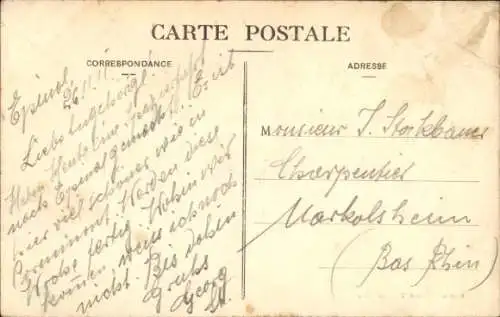 CARTE POSTALE
CORRESPONDANCE
ADRESSE
Epinal,
26.11.11.
Liebe Angehörige!
Haben Heute eine
nach Epinal gemacht. Es ist
hier viel schöner wie in
Cornimont. Werden diese
Woche fertig. Wohin wir
kommen weis ich noch
nicht. Bis dahin
Gruss
Georg
Monsieur J. Storkbauer
Charpentier
Markolsheim
(Bas Rhin)